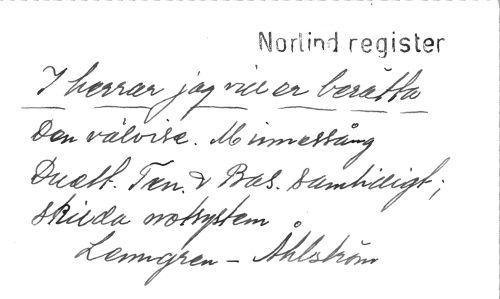 Norlind register
I herrar jag vill er berätta
Den välvise. Minnessång
Duett. Ten. & Bas. samtidigt;
skilda notsystem
Lenngren - Åhlström